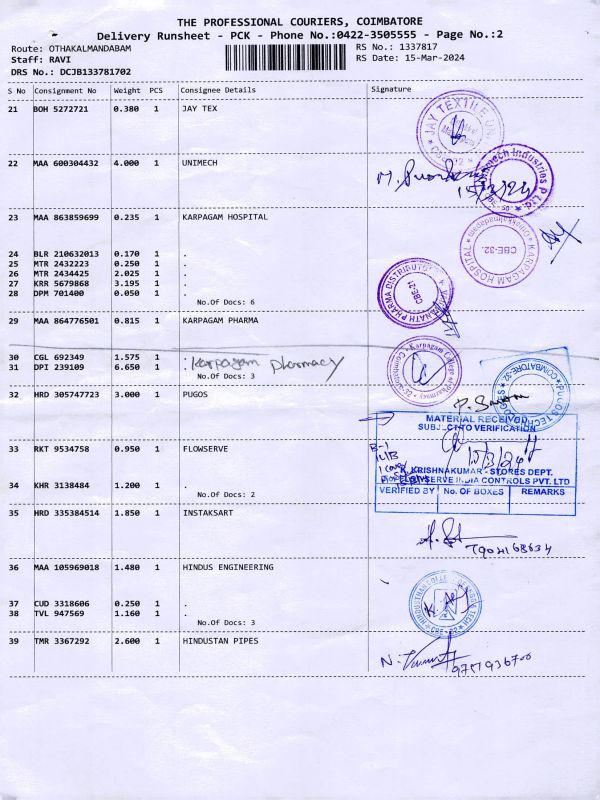 THE PROFESSIONAL COURIERS, COIMBATORE
Delivery Runsheet - PCK - Phone No.:0422-3505555 - Page No.:2
Route: OTHAKALMANDABAM
RS No.: 1337817
Staff: RAVI
RS Date: 15-Mar-2024
DRS No.: DCJB133781702
S No Consignment No Weight PCS Consignee Details Signature
21 BOH 5272721 0.380 1 JAY TEX
22 MAA 600304432 4.000 1 UNIMECH
15/3/24
23 MAA 863859699 0.235 1 KARPAGAM HOSPITAL
KARPAGAM HOSPITAL
CBE-32.
24 BLR 210632013 0.170 1 .
25 MTR 2432223 0.250 1 .
26 MTR 2434425 2.025 1 .
27 KRR 5679868 3.195 1 .
28 DPM 701400 0.050 1 .
No.Of Docs: 6
CBE-21
29 MAA 864776501 0.815 1 KARPAGAM PHARMA
30 CGL 692349 1.575 1 .
31 DPI 239109 6.650 1 .
Karpagam pharmacy
No.Of Docs: 3
Karpagam College of Pharmacy
32 HRD 305747723 3.000 1 PUGOS
PUGOS TECH
COIMBATORE-32
MATERIAL RECEIVED
SUBJECT TO VERIFICATION
15/3/24
33 RKT 9534758 0.950 1 FLOWSERVE
K. KRISHNAKUMAR - STORES DEPT.
FLOWSERVE INDIA CONTROLS PVT. LTD
VERIFIED BY No. OF BOXES REMARKS
34 KHR 3138484 1.200 1 .
No.Of Docs: 2
35 HRD 335384514 1.850 1 INSTAKSART
36 MAA 105969018 1.480 1 HINDUS ENGINEERING
37 CUD 3318606 0.250 1 .
38 TVL 947569 1.160 1 .
No.Of Docs: 3
39 TMR 3367292 2.600 1 HINDUSTAN PIPES